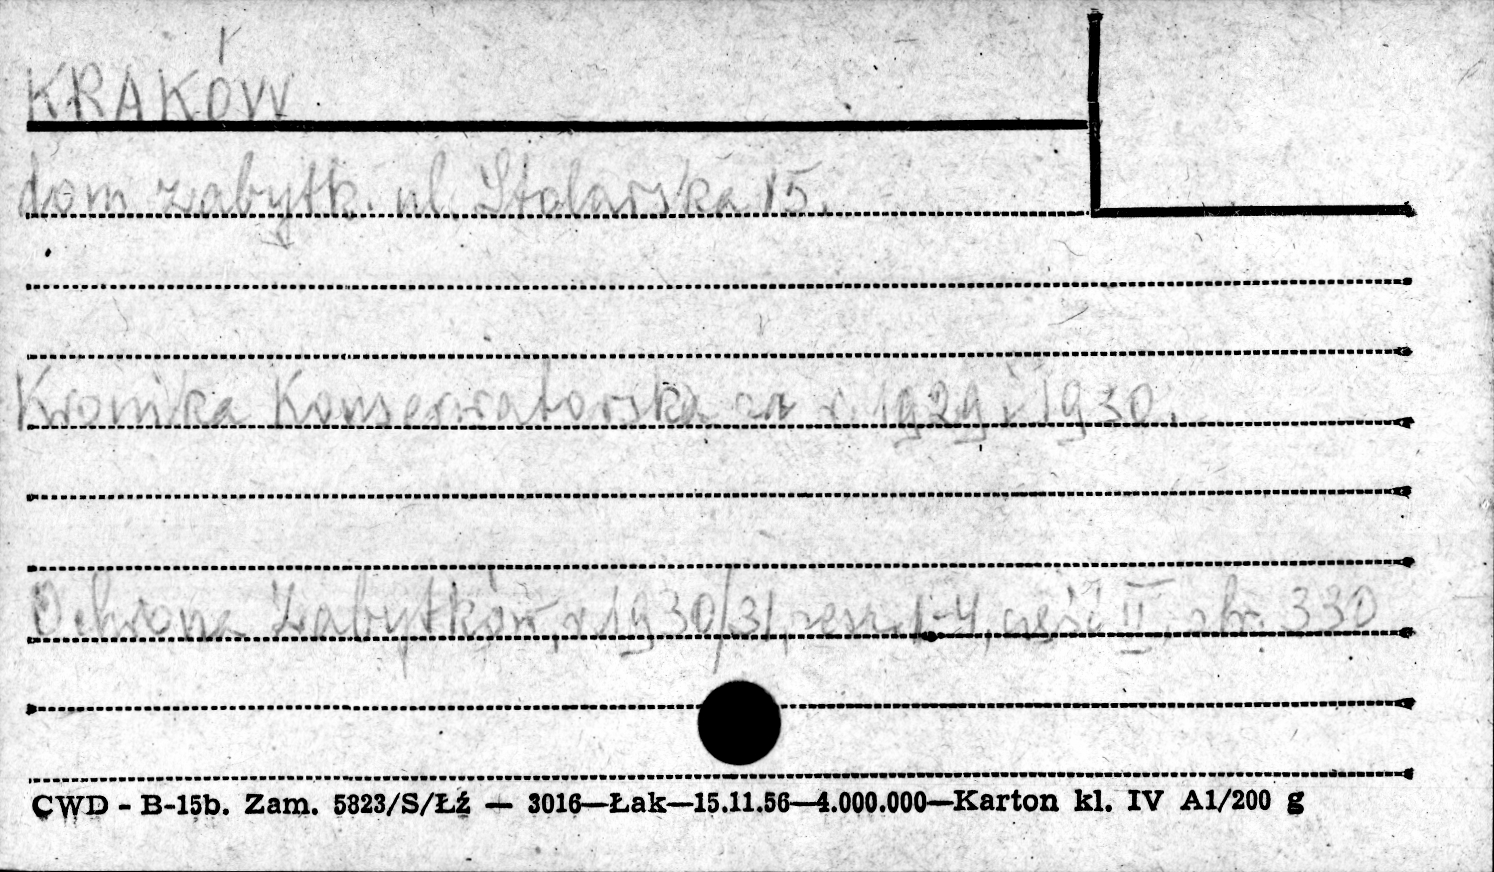 KRAKÓW
dom zabytk. ul. Stolarska 15.
Kronika Konserwatorska za r. 1929 i 1930.
Ochrona Zabytków, r. 1930/31, zesz. 1-4, część II, str. 330
CWD - B-15b. Zam. 5823/S/Łź — 3016—Łak—15.11.56—4.000.000—Karton kl. IV A1/200 g